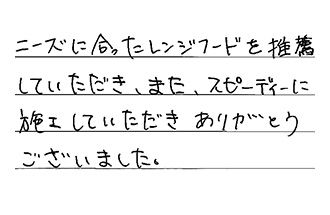 ニーズに合ったレンジフードを推薦
していただき、また、スピーディーに
施工していただき ありがとう
ございました。